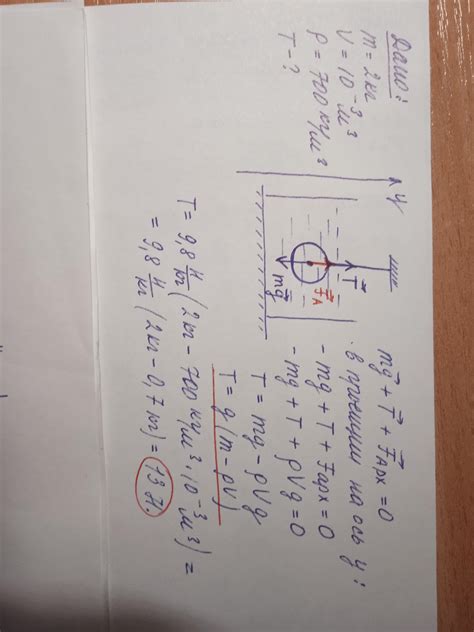 Дано:
m = 2кг
V = 10⁻³ м³
ρ = 700 кг/м³
T - ?
y
T⃗
F⃗A
mg⃗
mg⃗ + T⃗ + F⃗Aрх = 0
в проекции на ось y:
- mg + T + FAрх = 0
- mg + T + ρVg = 0
T = mg - ρVg
T = g (m - ρV)
T = 9,8 Н/кг (2кг - 700 кг/м³ · 10⁻³ м³) =
= 9,8 Н/кг (2кг - 0,7 кг) = 13 Н.